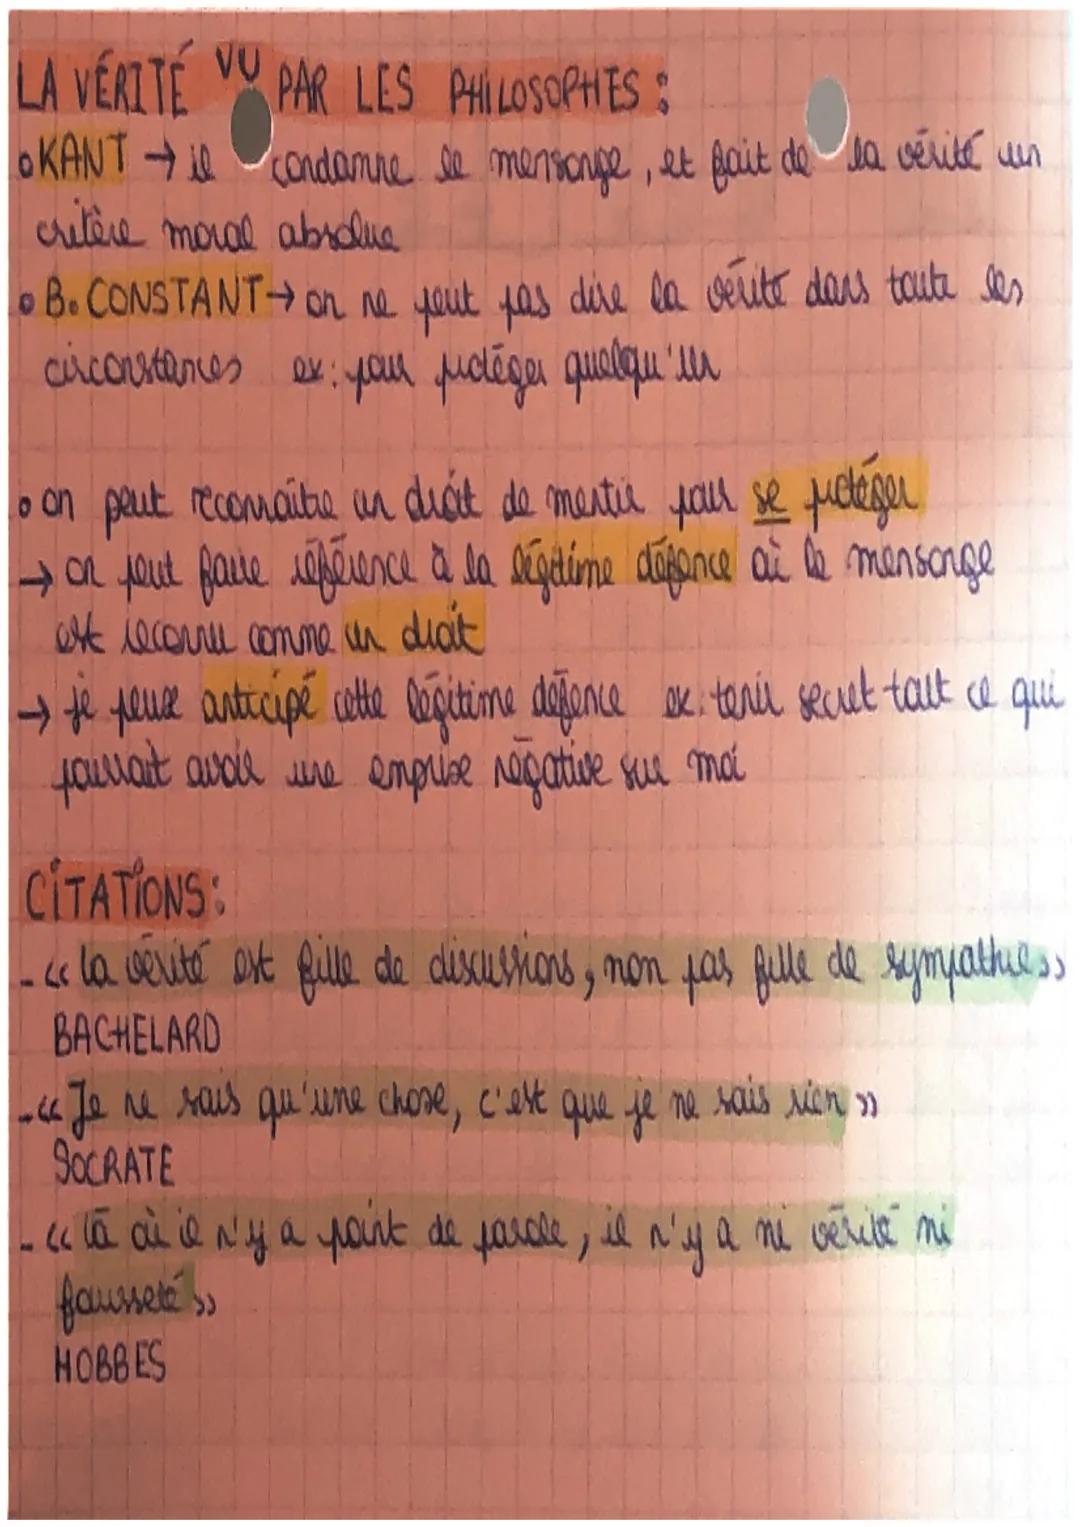 LA VÉRITÉ VU PAR LES PHILOSOPHES :
• KANT → il condamne le mensonge, et fait de la vérité un
critère moral absolue
• B. CONSTANT → on ne peut pas dire la vérité dans toute les
circonstances ex : pour protéger quelqu'un
• on peut reconnaître un droit de mentir pour se protéger
→ on peut faire référence à la légitime défance où le mensonge
est reconnu comme un droit
→ je peux anticipé cette légitime défence ex : tenir secret tout ce qui
pourrait avoir une emprise négative sur moi
CITATIONS :
- « la vérité est fille de discussions, non pas fille de sympathie »
BACHELARD
- « Je ne sais qu'une chose, c'est que je ne sais rien »
SOCRATE
- « là où il n'y a point de parole, il n'y a ni vérité ni
fausseté »
HOBBES